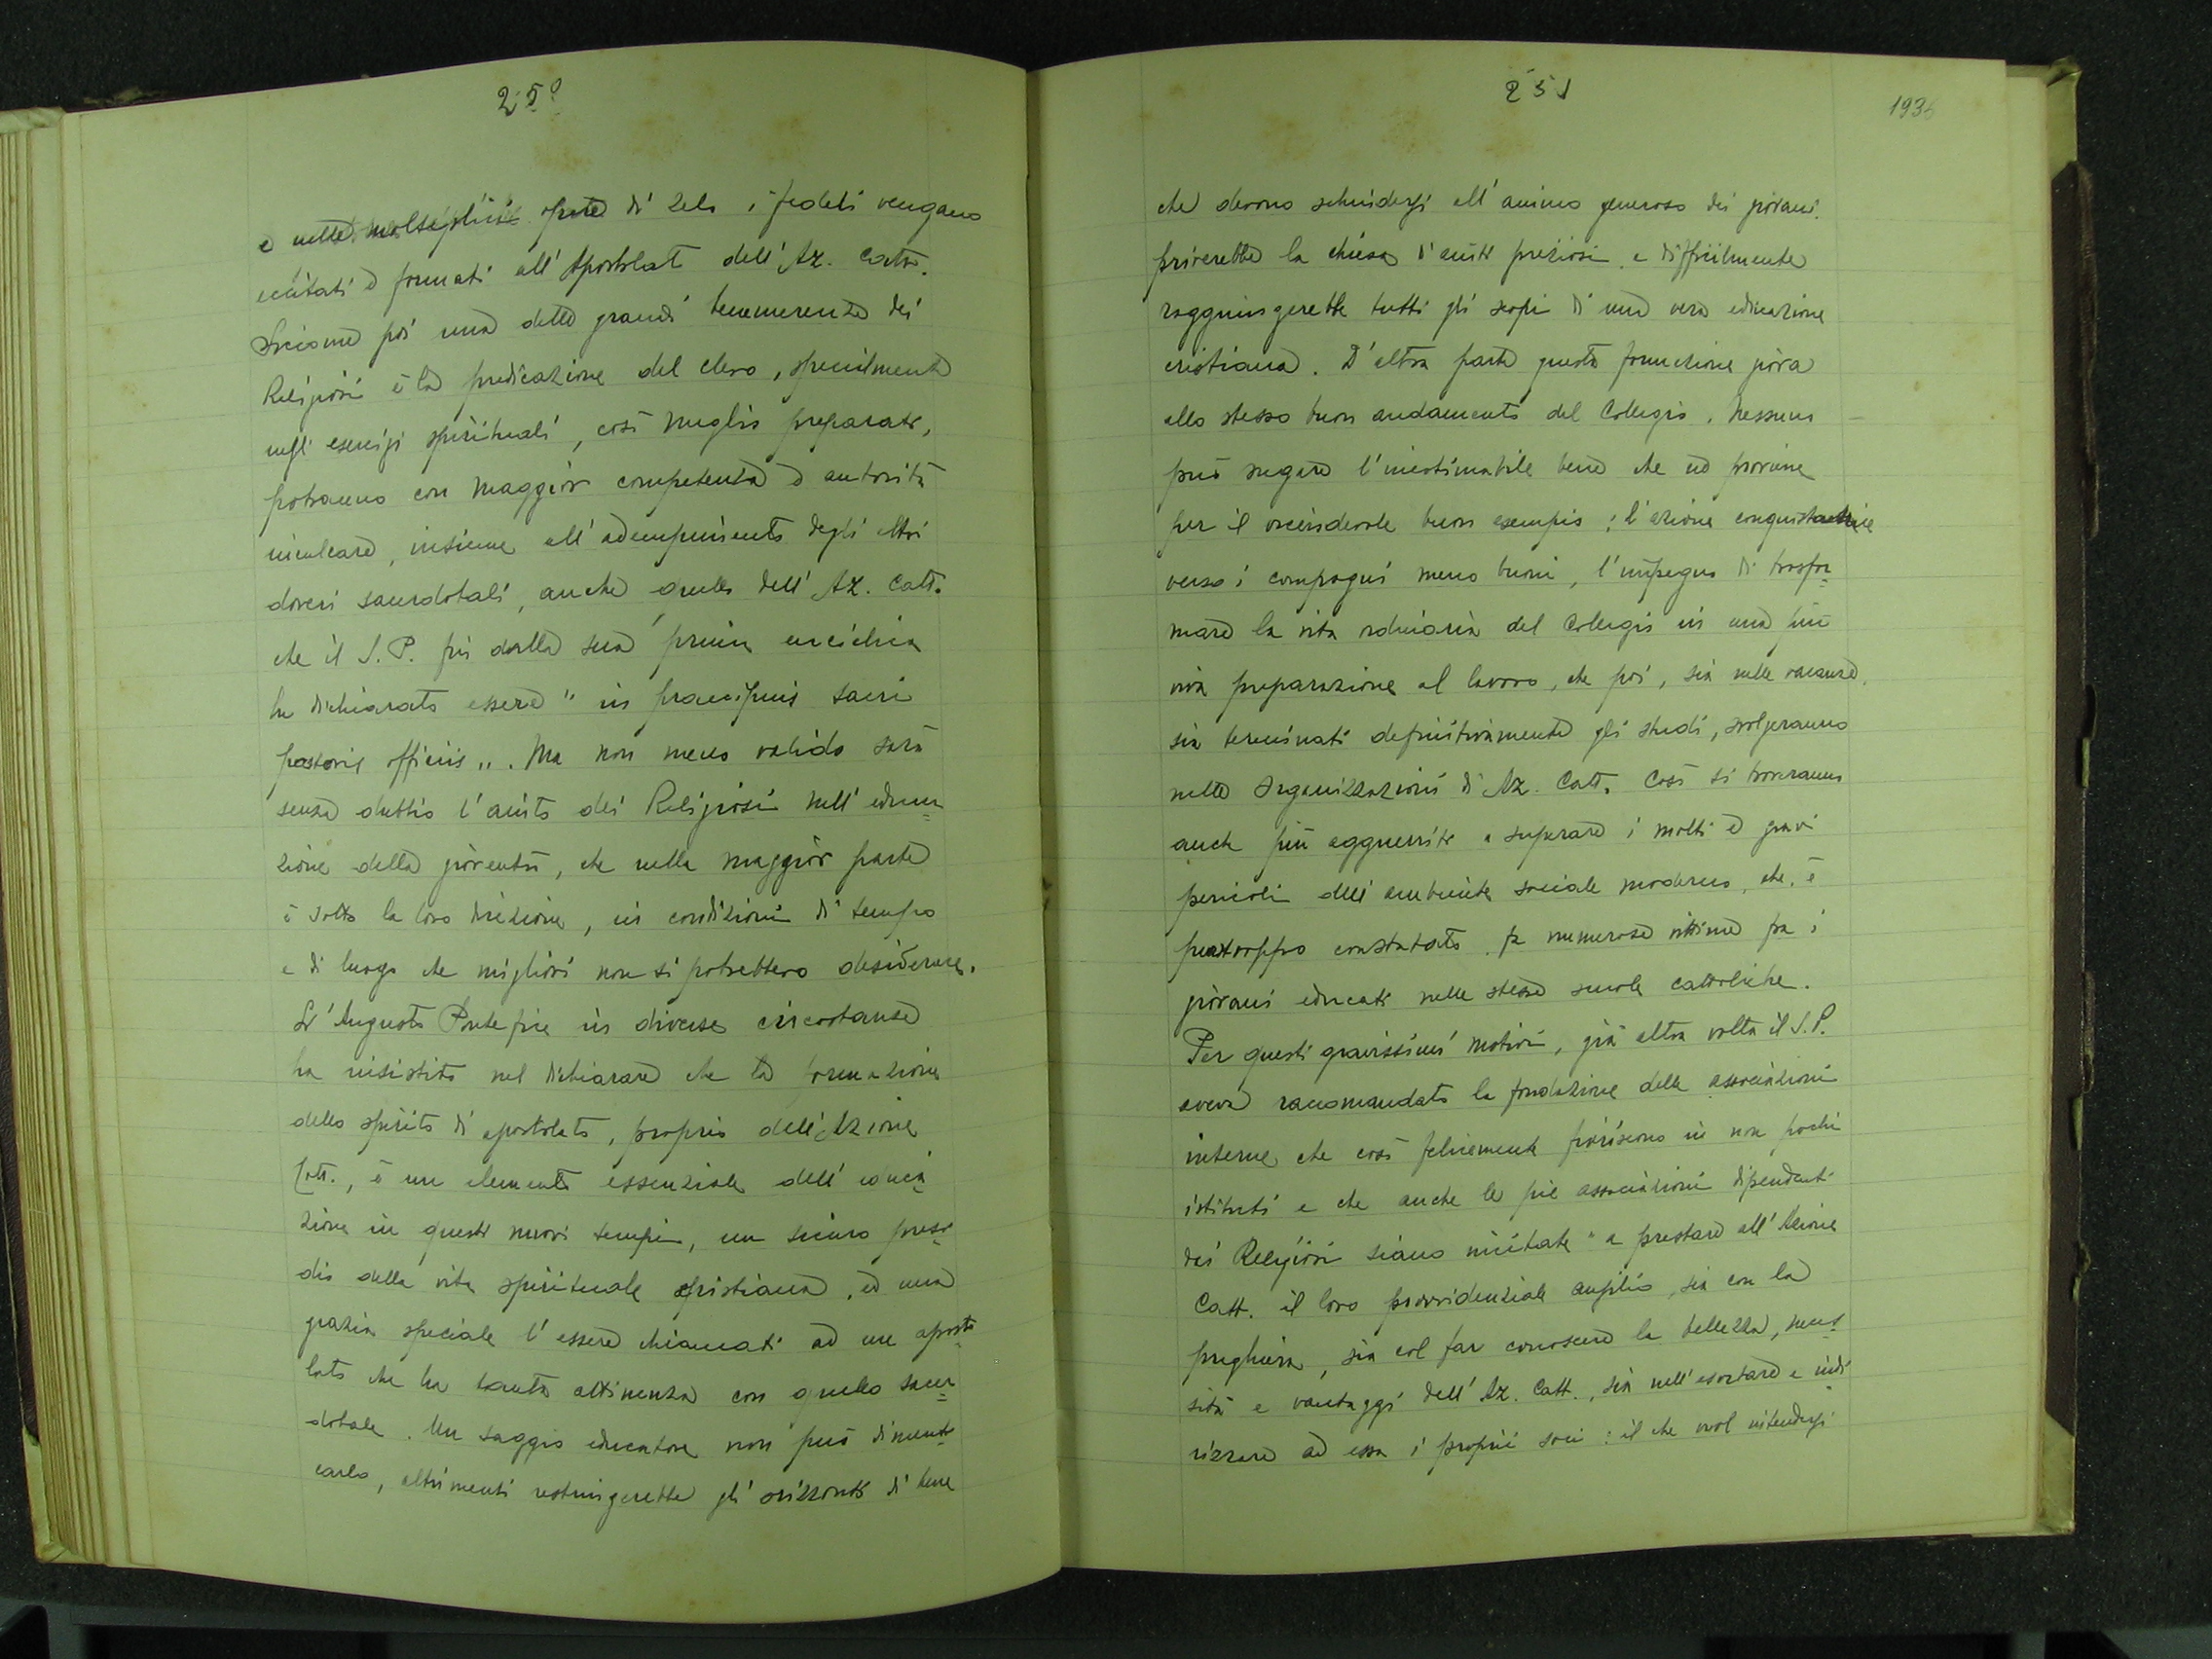 250
e nelle molteplici opere di zelo i fedeli vengano
eccitati e formati all'Apostolato dell'Az. Catt.
Siccome poi una delle grandi benemerenze dei
Religiosi è la predicazione del clero, specialmente
negli esercizi spirituali, così meglio preparati,
potranno con maggior competenza e autorità
inculcare, insieme all'adempimento degli altri
doveri sacerdotali, anche quello dell'Az. Catt.
che il S. P. fin dalla sua prima enciclica
ha dichiarato essere "in praecipuis sacri
pastoris officiis". Ma non meno valido sarà
senza dubbio l'aiuto dei Religiosi nell'educa=
zione della gioventù, che nella maggior parte
è sotto la loro direzione, in condizioni di tempo
e di luogo che migliori non si potrebbero desiderare.
L'Augusto Pontefice in diverse circostanze
ha insistito nel dichiarare che la formazione
dello spirito di apostolato, proprio dell'Azione
Catt., è un elemento essenziale dell'educa=
zione in questi nuovi tempi, un sicuro presi=
dio della vita spirituale cristiana, ed una
grazia speciale l'essere chiamati ad un aposto=
lato che ha tanta attinenza con quello sacer=
dotale. Un saggio educatore non può dimenti=
carlo, altrimenti restringerebbe gli orizzonti di bene
251
1936
che devono schiudersi all'animo generoso dei giovani.
priverebbe la chiesa d'aiuti preziosi e difficilmente
raggiungerebbe tutti gli scopi di una vera educazione
cristiana. D'altra parte questa formazione giova
allo stesso buon andamento del Collegio. Nessuno
può negare l'inestimabile bene che ne proviene
per il vicendevole buon esempio; l'azione conquistatrice
verso i compagni meno buoni, l'impegno di trasfor=
mare la vita ordinaria del Collegio in una più
viva preparazione al lavoro, che poi, sia nelle vacanze,
sia terminati definitivamente gli studi, svolgeranno
nelle Organizzazioni di Az. Catt. Così si troveranno
anche più agguerriti a superare i molti e gravi
pericoli dell'ambiente sociale moderno, che, è
purtroppo constatato, fa numerose vittime fra i
giovani educati nelle stesse scuole cattoliche.
Per questi gravissimi motivi, già altra volta il S. P.
aveva raccomandato la fondazione delle associazioni
interne che così felicemente fioriscono in non pochi
istituti e che anche le pie associazioni dipendenti
dai Religiosi siano invitate "a prestare all'Azione
Catt. il loro provvidenziale ausilio, sia con la
preghiera, sia col far conoscere la bellezza, neces=
sità e vantaggi dell'Az. Catt., sia nell'esortare e indi=
rizzare ad essa i proprii soci: il che vuol intendersi